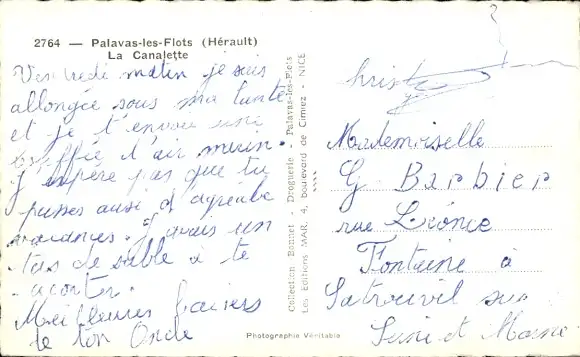 2764 — Palavas-les-Flots (Hérault)
La Canalette
Vendredi matin je suis
allongée sous ma tante
et je t'envoie une
bouffée d'air marin.
J'empère pas que tu
passes ausi d'agréable
vacances. J'aurais un
tas de sable à te
raconter.
Meilleures baisers
de ton Oncle
Photographie Véritable
Collection Bonnet - Droguerie - Palavas-les-Flots
Les Editions MAR, 4, boulevard de Cimiez - NICE
Christ
Mademoiselle
G Barbier
rue Léonce
Fontaine à
Satrouvil sur
Seine et Marne